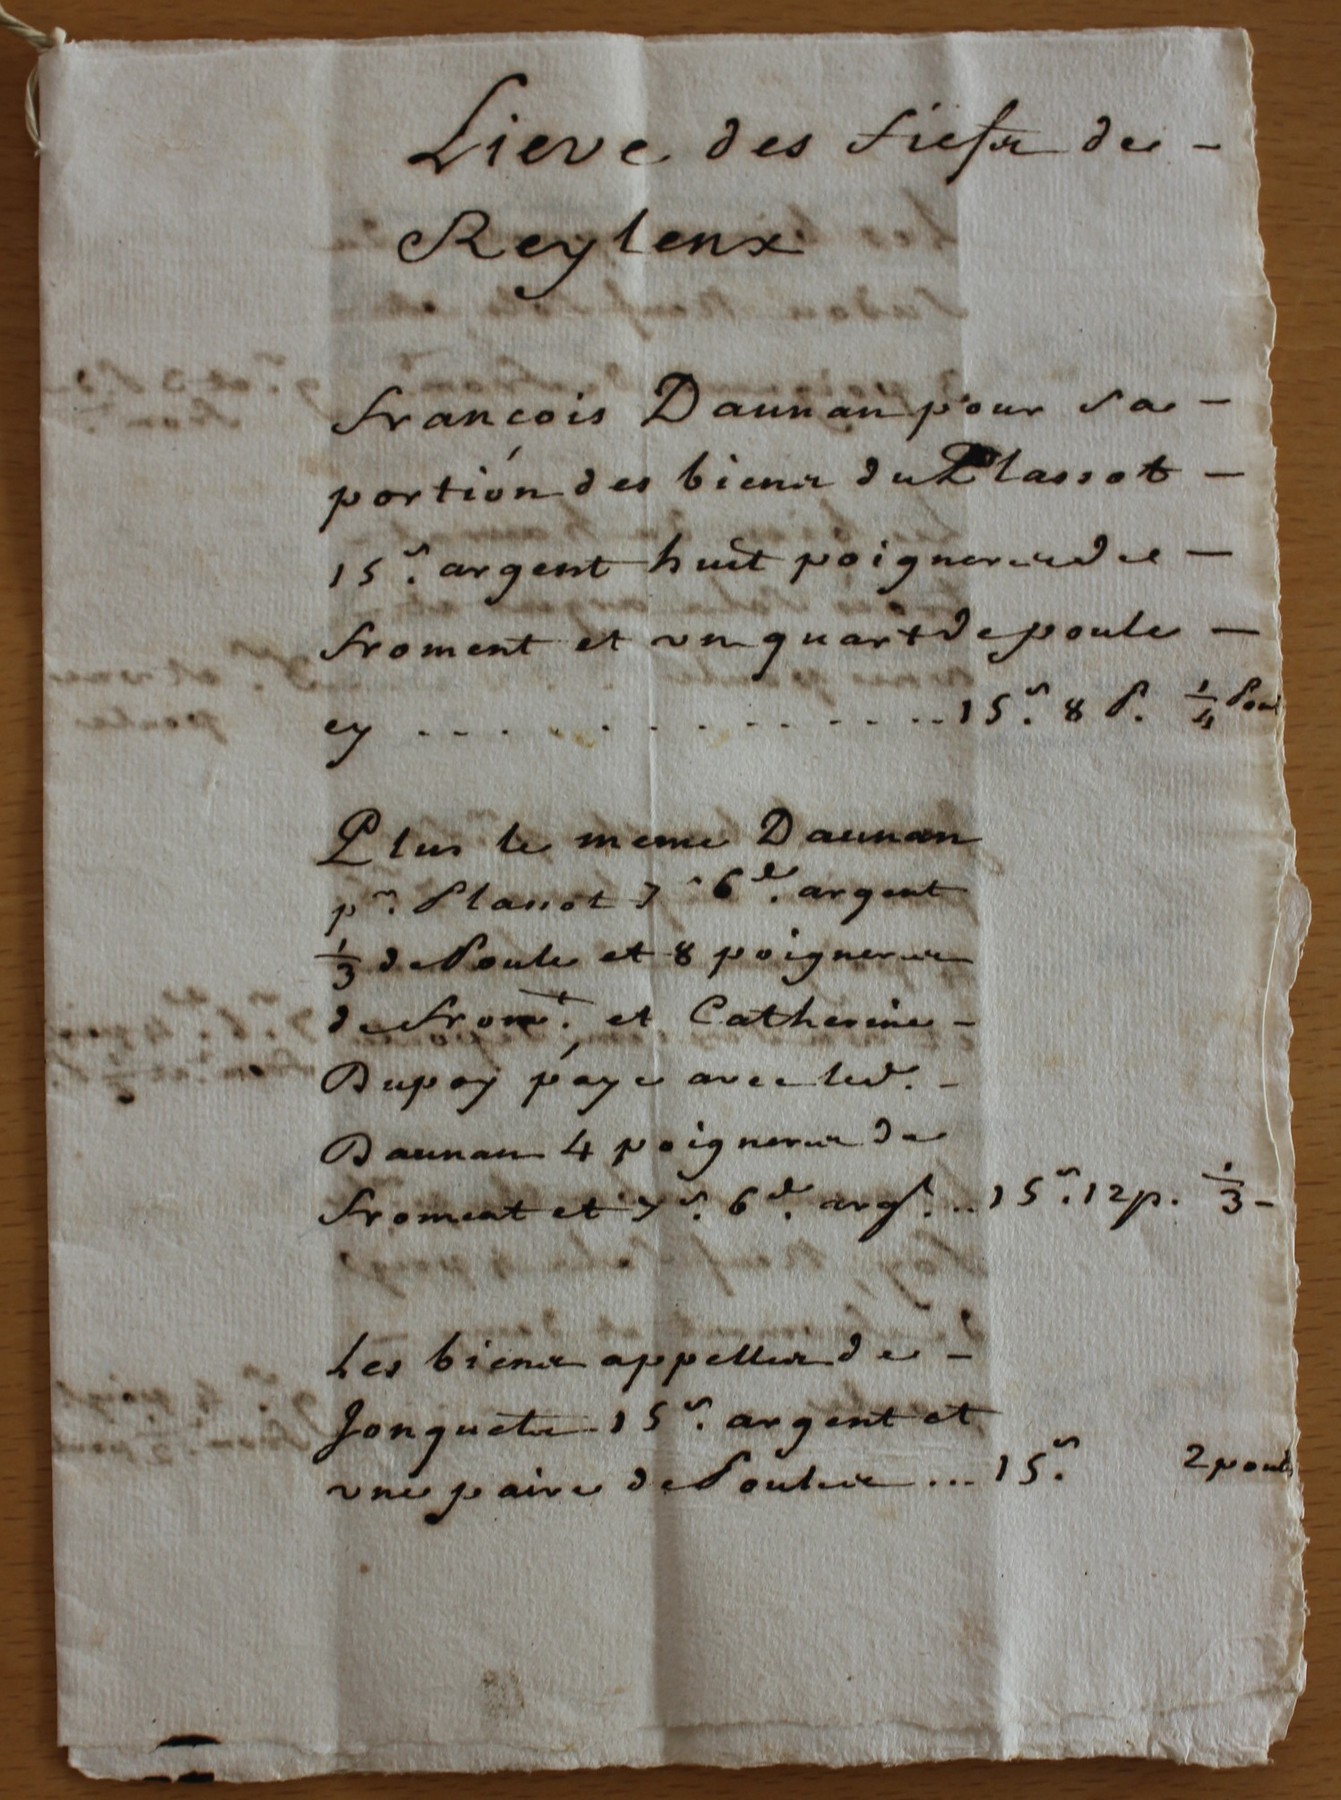 Lieve des fiefs de -
Reyleux
françois Daunan pour sa -
portion des biens du Plassot -
15 s. argent huit poigneres de -
froment et un quart de poule -
cy . . . . . . . . . . . . . 15 s. 8 P. 1/4 Poul
Plus le meme Daunan
pr. Plassot 7 s 6 d. argent
1/3 de Poule et 8 poigneres
de fromt. et Catherine -
Dupoy paye avec led. -
Daunan 4 poigneres de
froment et 7 s. 6 d. argt. .. 15 s. 12 p. 1/3 -
Les biens appelles de -
Jonquete 15 s. argent et
une paire de Poules ... 15 s. 2 poules